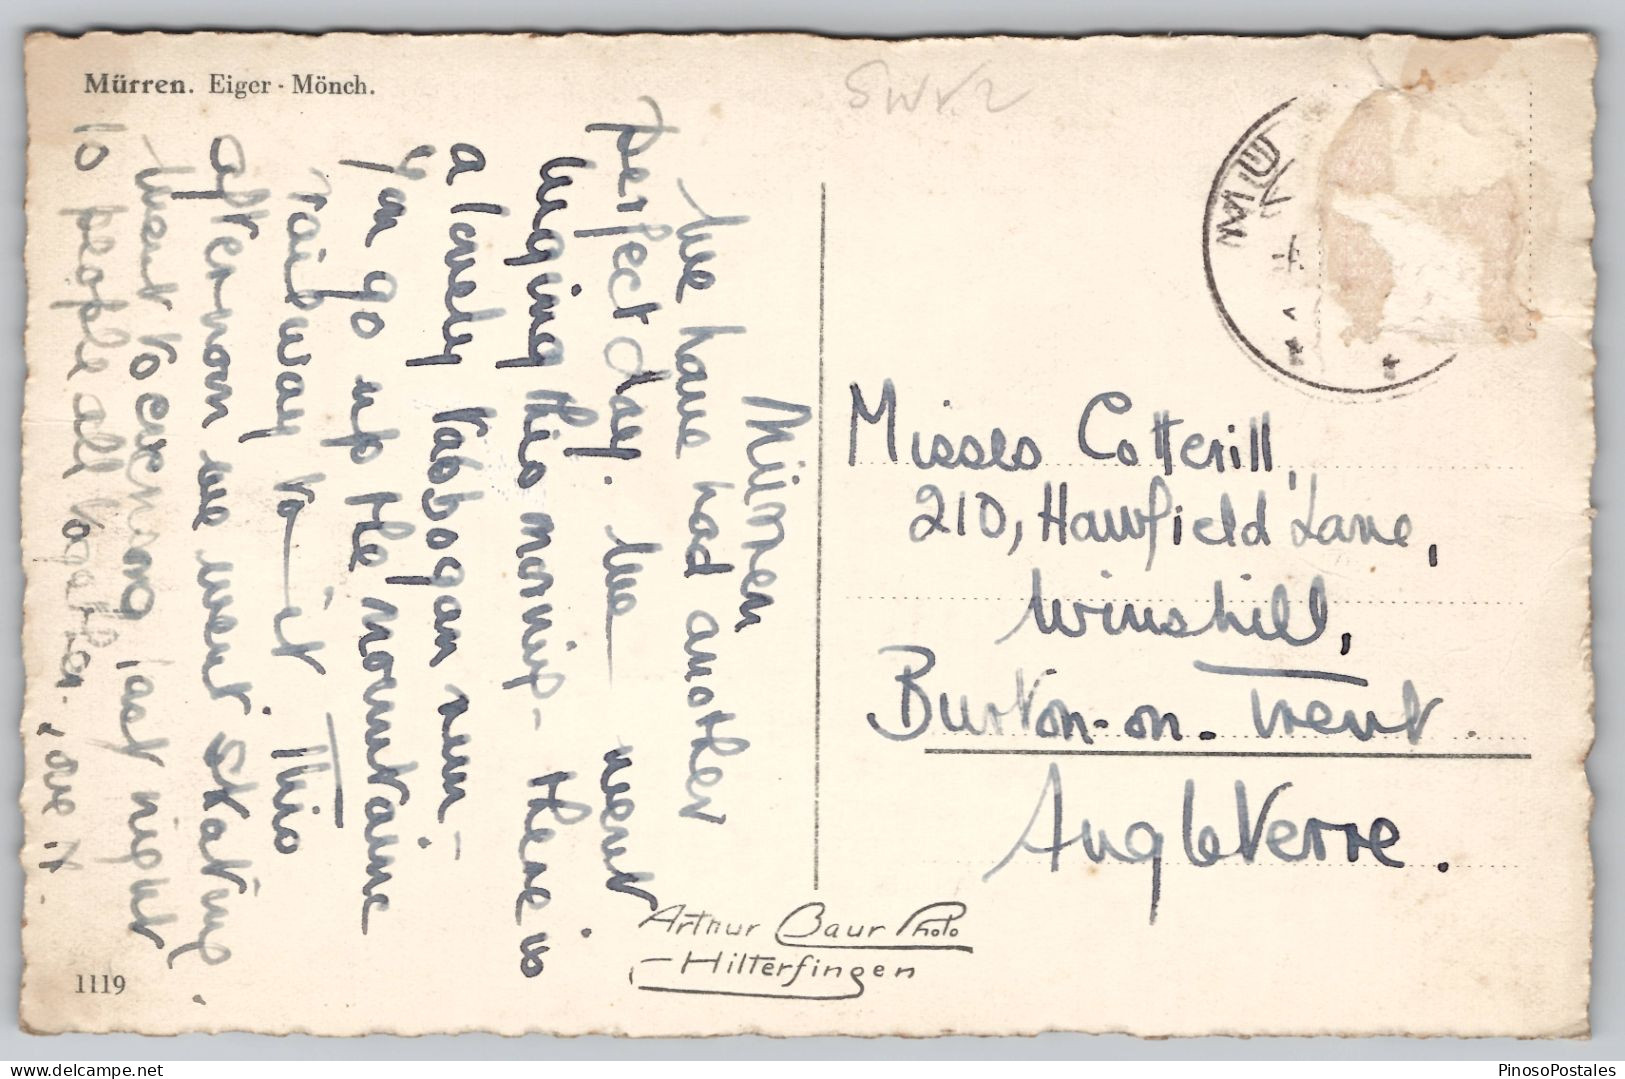 Mürren. Eiger - Mönch.
SWK2
Mürren
We have had another
perfect day. We went
luging this morning - there is
a lovely tobbogan run -
you go up the mountaine
railway to it. This
afternoon we went skating.
Went to cervong last night
10 people all together. love it.
Misses Cotterill,
210, Hawfield Lane,
Winshill,
Burton-on-Trent.
Angleterre.
Arthur Baur Photo
Hilterfingen
1119
www.delcampe.net
PinosoPostales